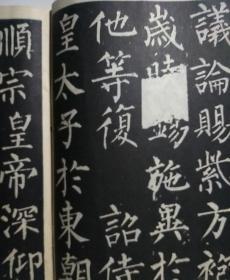 議論賜紫方袍
歲時錫施異於
他等復 詔侍
皇太子於東朝
順宗皇帝深仰